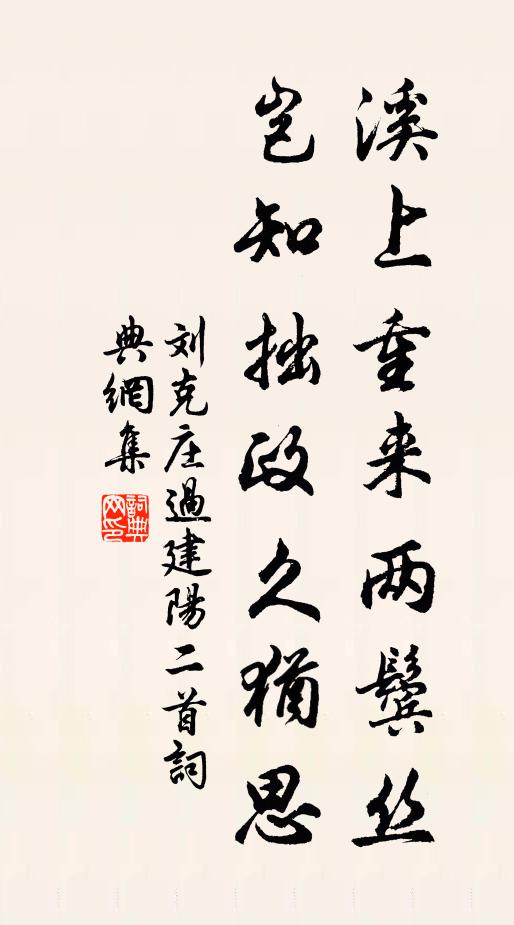 溪上重来两鬓丝
岂知拙政久犹思
刘克庄過建陽二首詞
典網集
詞典网印